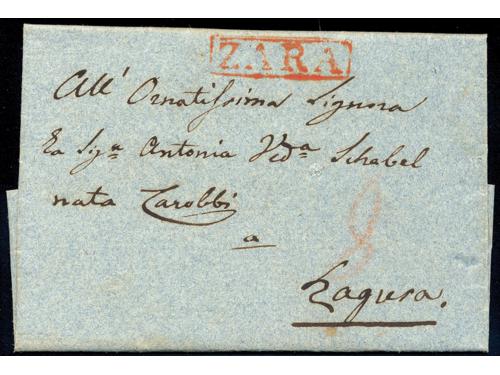 ZARA
All' Ornatissima Signora
La Sigª Antonia Vdª Schabel
nata Zarobbi
a
Ragusa.